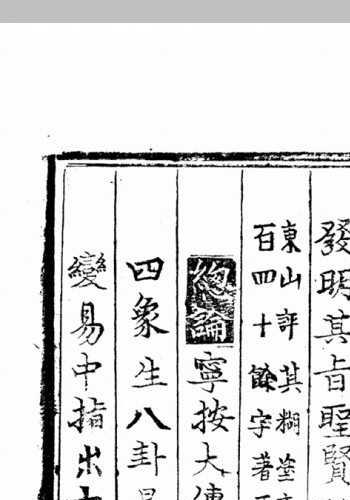 發明其旨聖賢
東山評其糊塗
百四十餘字著
總論寧按大傳
四象生八卦
變易中指出